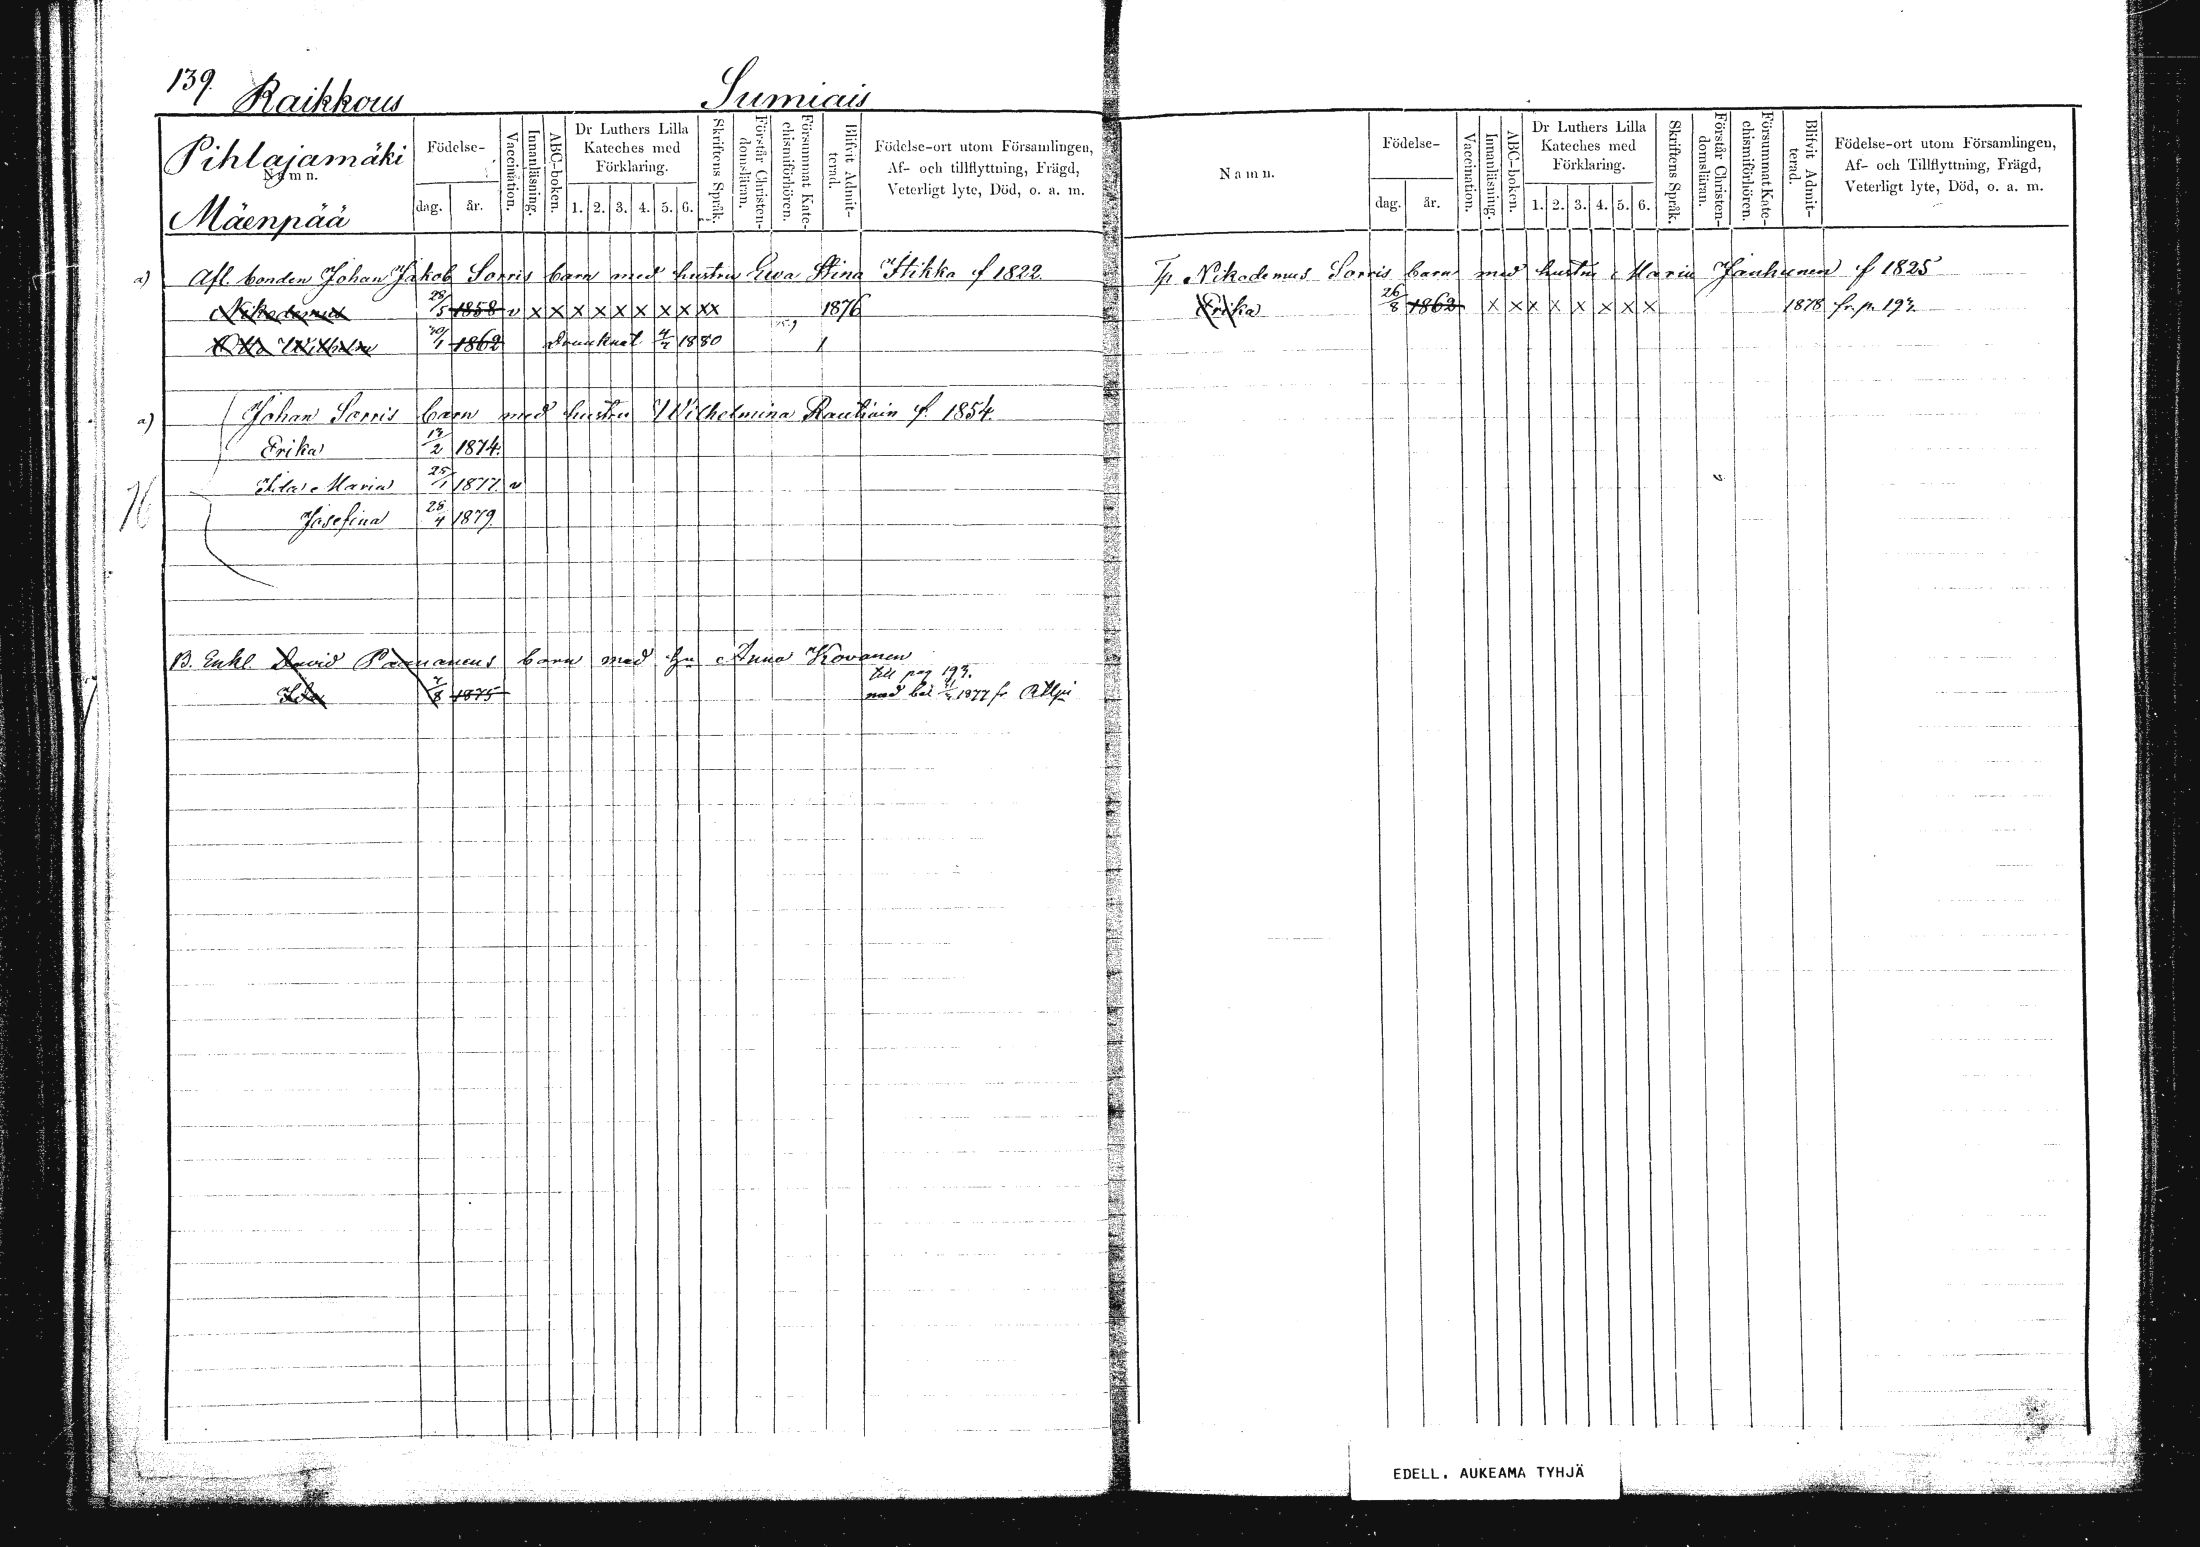 139. Raikkous Sumiais
Pihlajamäki
Namn.
Mäenpää
Födelse-
dag. år.
Vaccination.
Innanläsning.
ABC-boken.
Dr Luthers Lilla
Kateches med
Förklaring.
1. 2. 3. 4. 5. 6.
Skriftens Språk.
Förstår Christen-
domsläran.
Försummat Kate-
chismiförhören.
Blifvit Admit-
terad.
Födelse-ort utom Församlingen,
Af- och tillflyttning, Frägd,
Veterligt lyte, Död, o. a. m.
a) Afl. bonden Johan Jakob Sorris barn med hustru Ewa Stina Hikka f 1822.
Nikodemus 28/5 1858 v x x x x x x x x x x 1876
Otto Wilhelm 1862 Drunknat 1880
a) Johan Sorris barn med hustru Wilhelmina Rautiain f. 1854.
Erika 13/2 1874.
Ida Maria 25/1 1877. v
Josefina 28/4 1879.
B. Enkl David Paananens barn med hu Anna Kovanen
till pag 193.
Ida 1875 med bet 1877 fr
Namn.
Födelse-
dag. år.
Vaccination.
Innanläsning.
ABC-boken.
Dr Luthers Lilla
Kateches med
Förklaring.
1. 2. 3. 4. 5. 6.
Skriftens Språk.
Förstår Christen-
domsläran.
Försummat Kate-
chismiförhören.
Blifvit Admit-
terad.
Födelse-ort utom Församlingen,
Af- och Tillflyttning, Frägd,
Veterligt lyte, Död, o. a. m.
Tp Nikodemus Sorris barn med hustru Maria Jauhunen f 1825
Erika 26/8 1862 x x x x x x x x 1878 fr. p. 193.
EDELL. AUKEAMA TYHJÄ